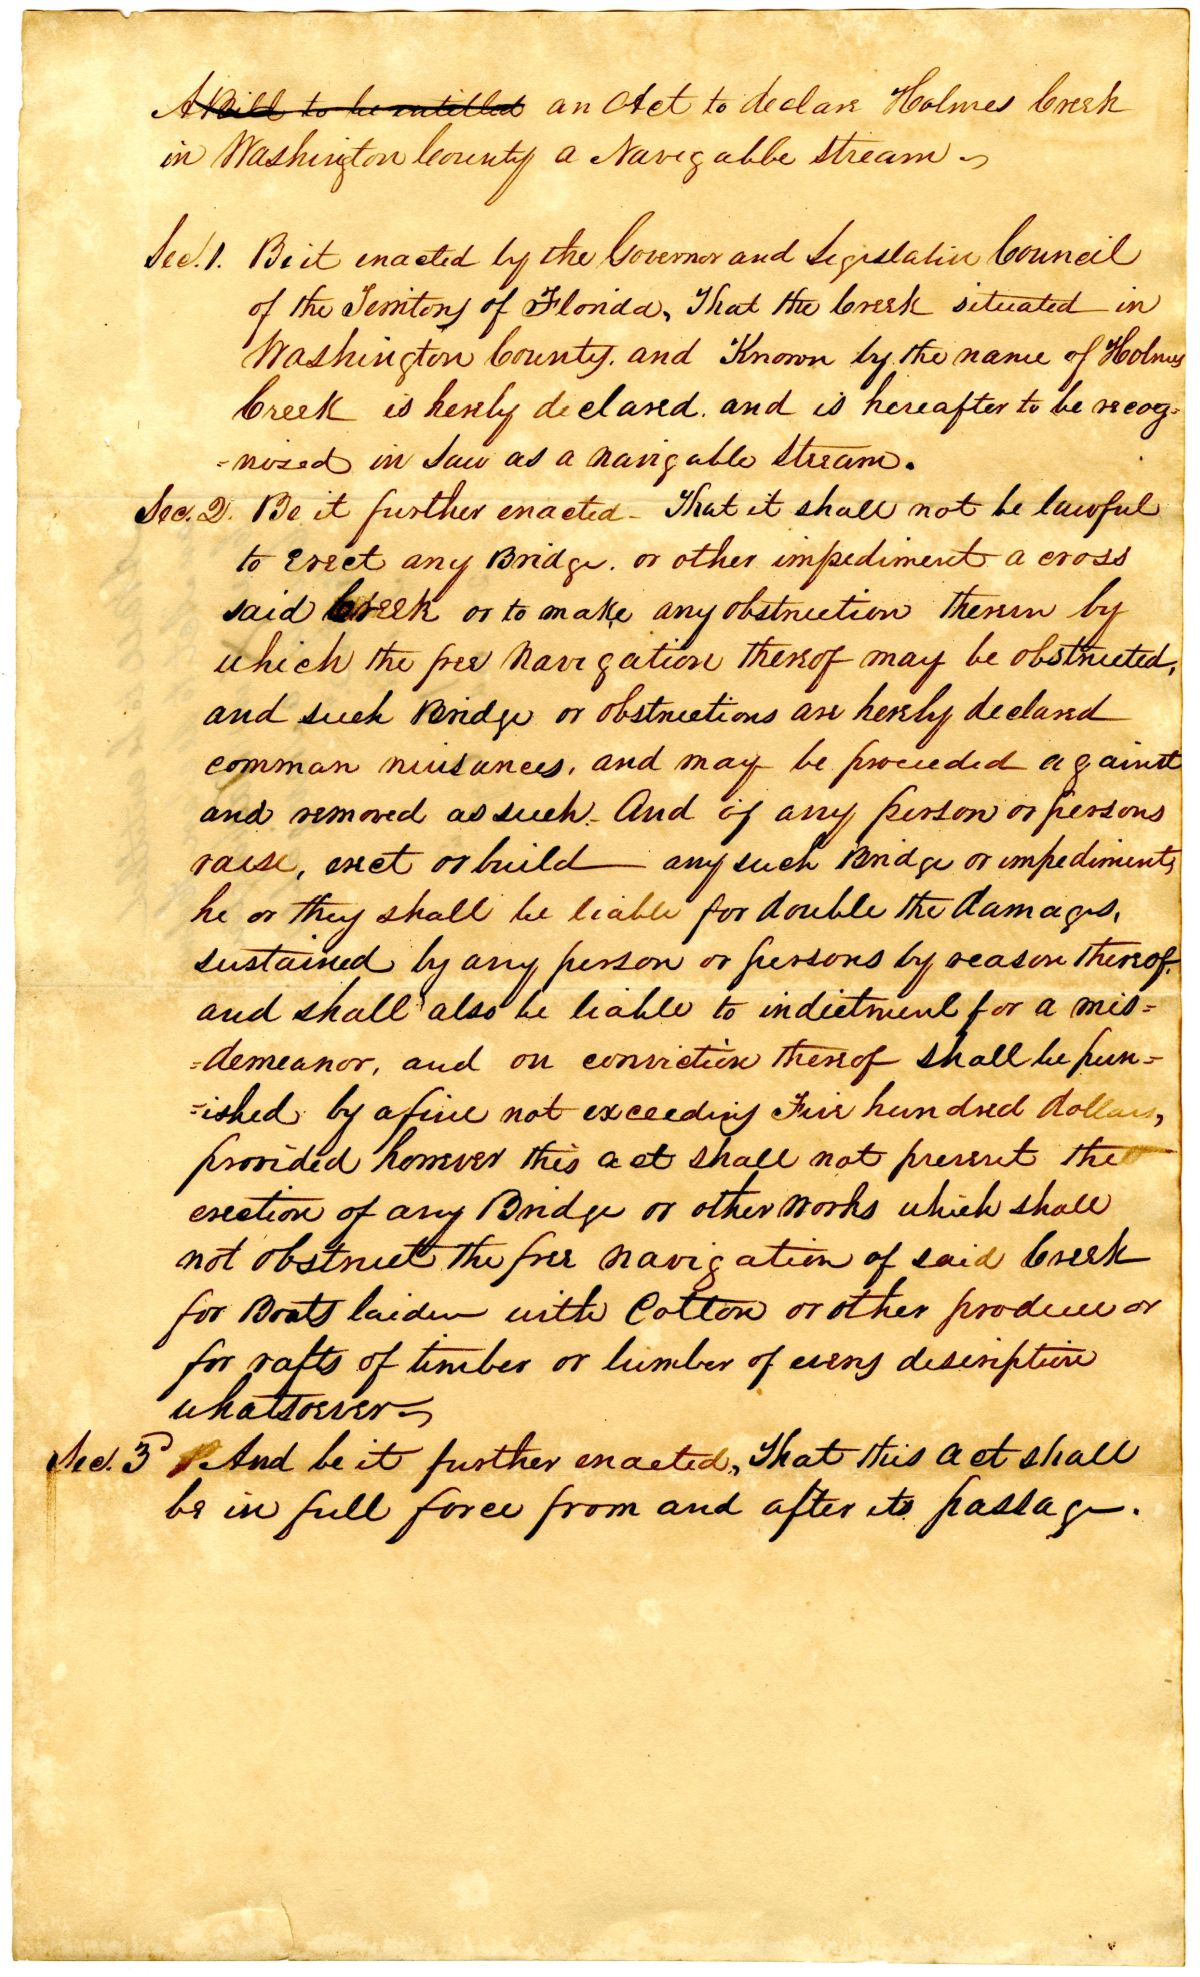 A Bill to be entitled an Act to declare Holmes Creek
in Washington County a Navigabbe Stream
Sec. 1. Be it enacted by the Governor and Legislative Council
of the Territory of Florida, That the Creek situated in
Washington County. and Known by the name of Holmes
Creek is hereby declared. and is hereafter to be recog=
=nized in Law as a Navigable Stream.
Sec. 2. Be it further enacted - That it shall not be lawful
to Erect any Bridge. or other impediment a cross
said Creek or to make any obstruction therein by
which the free Navigation thereof may be obstructed,
and such Bridge or obstructions are hereby declared
comman nuisances, and may be proceeded against
and removed as such - And if any person or persons
raise, erect or build any such Bridge or impediments
he or they shall be liable for double the damages,
sustained by any person or persons by reason thereof.
and shall also be liable to indictment for a mis=
=demeanor, and on conviction thereof shall be pun=
=ished by a fine not exceeding Five hundred dollars,
provided however this act shall not prevent the
erection of any Bridge or other works which shall
not obstruct the free navigation of said Creek
for Boats laiden with Cotton or other produce or
for rafts of timber or lumber of every description
whatsoever
Sec. 3d And be it further enacted, That this act shall
be in full force from and after its passage.